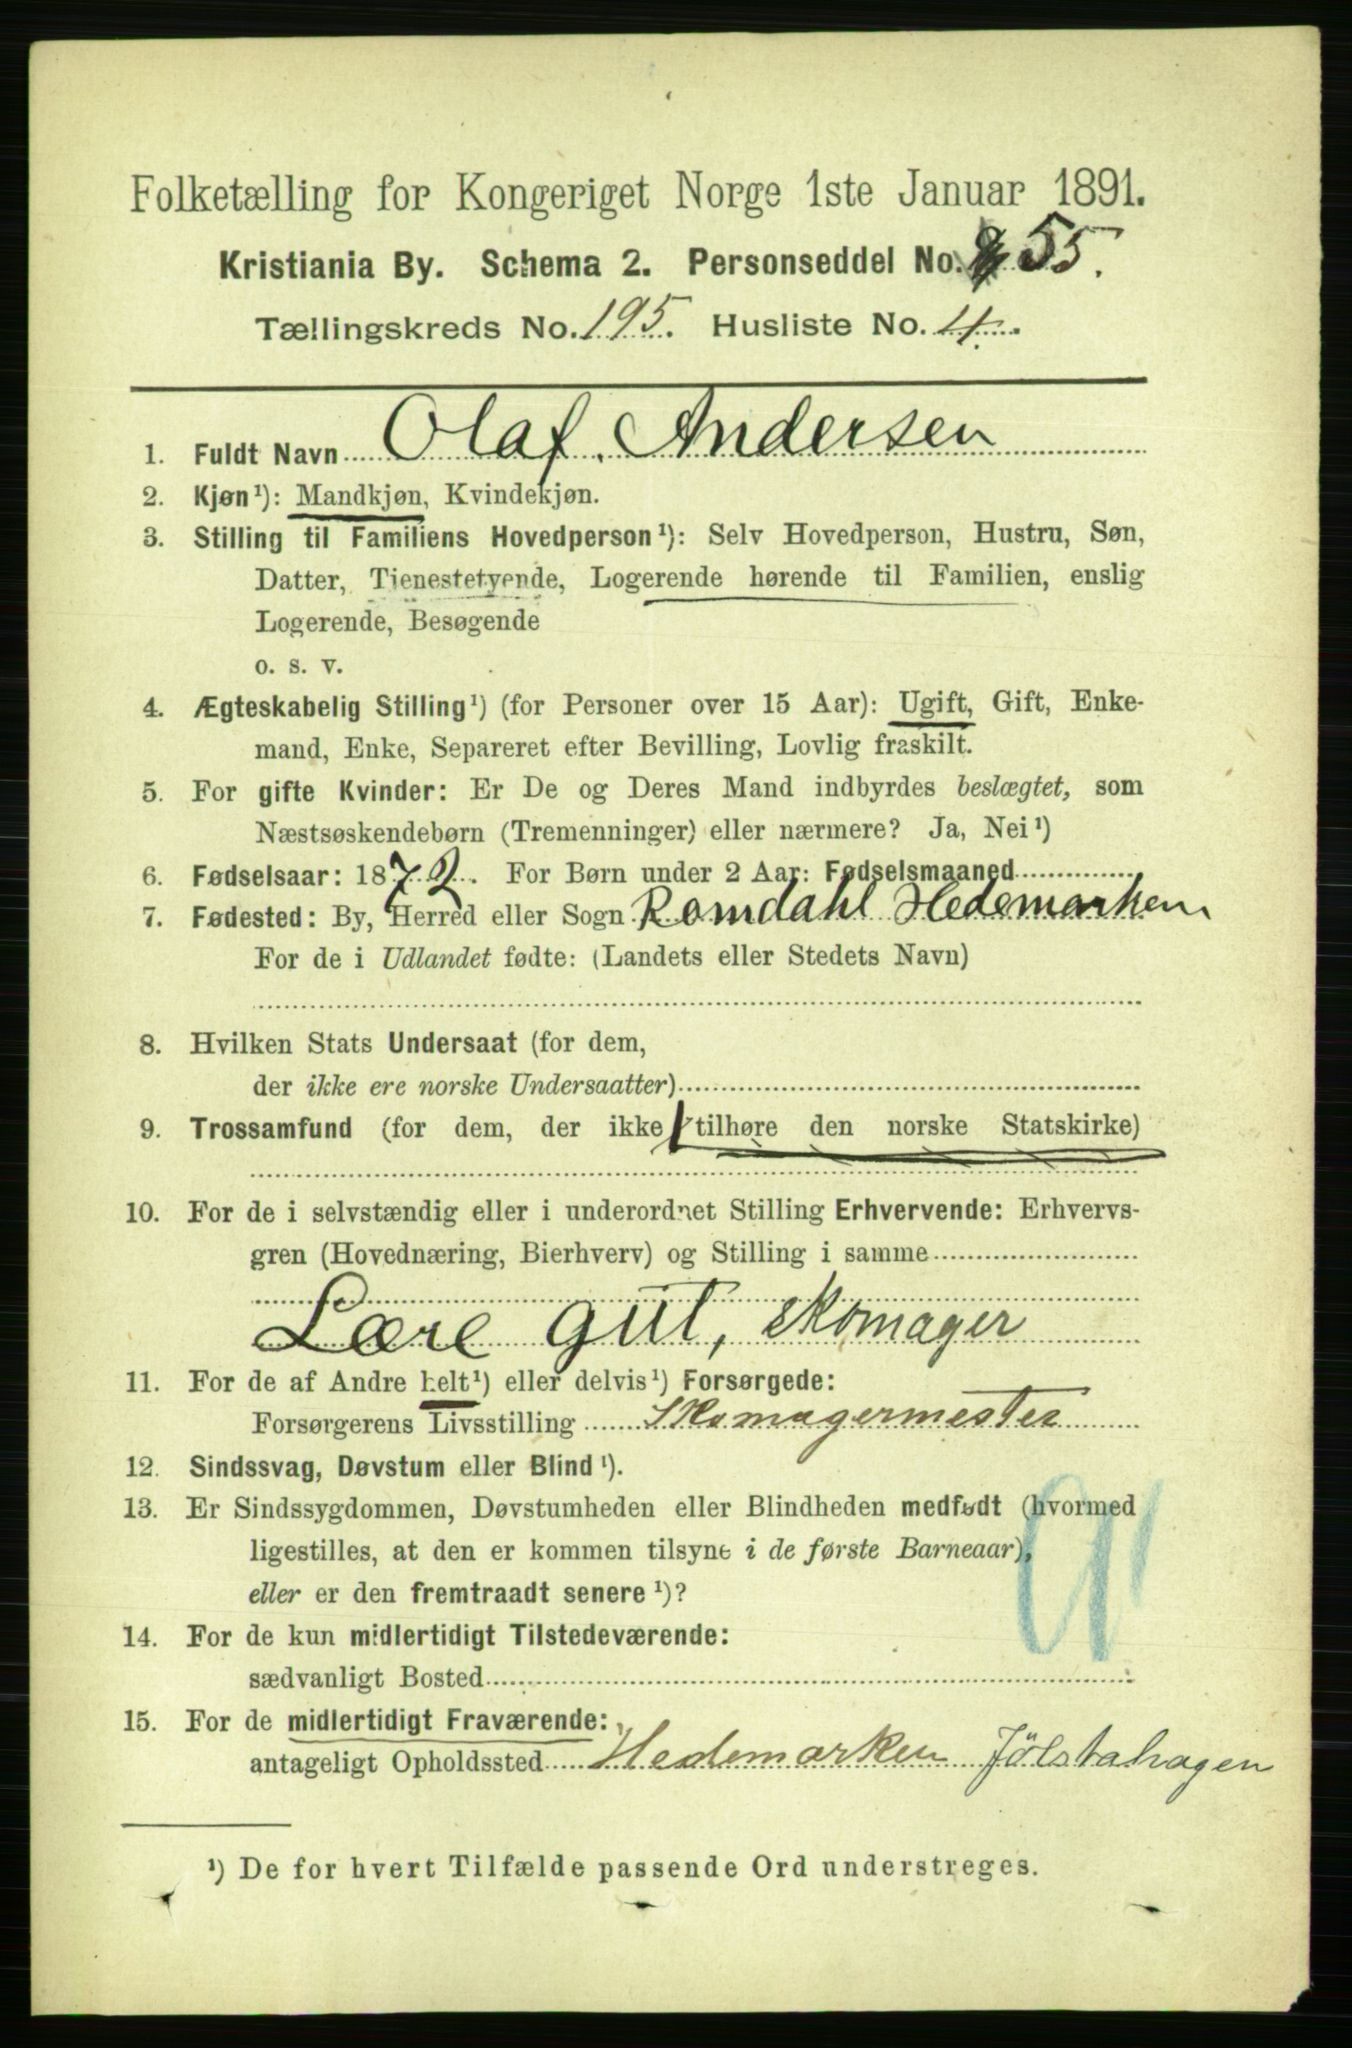 Folketælling for Kongeriget Norge 1ste Januar 1891.
Kristiania By. Schema 2. Personseddel No. 55.
Tællingskreds No. 195. Husliste No. 4.
1. Fuldt Navn Olaf. Andersen
2. Kjøn¹): Mandkjøn, Kvindekjøn.
3. Stilling til Familiens Hovedperson¹): Selv Hovedperson, Hustru, Søn,
Datter, Tjenestetyende, Logerende hørende til Familien, enslig
Logerende, Besøgende
o. s. v.
4. Ægteskabelig Stilling¹) (for Personer over 15 Aar): Ugift, Gift, Enke-
mand, Enke, Separeret efter Bevilling, Lovlig fraskilt.
5. For gifte Kvinder: Er De og Deres Mand indbyrdes beslægtet, som
Næstsøskendebørn (Tremenninger) eller nærmere? Ja, Nei¹)
6. Fødselsaar: 1872. For Børn under 2 Aar: Fødselsmaaned
7. Fødested: By, Herred eller Sogn Romdahl Hedemarken
For de i Udlandet fødte: (Landets eller Stedets Navn)
8. Hvilken Stats Undersaat (for dem,
der ikke ere norske Undersaatter)
9. Trossamfund (for dem, der ikke tilhøre den norske Statskirke)
10. For de i selvstændig eller i underordnet Stilling Erhvervende: Erhvervs-
gren (Hovednæring, Bierhverv) og Stilling i samme
Lære gut, skomager
11. For de af Andre helt¹) eller delvis¹) Forsørgede:
Forsørgerens Livsstilling Skomagermester
12. Sindssvag, Døvstum eller Blind¹).
13. Er Sindssygdommen, Døvstumheden eller Blindheden medfødt (hvormed
ligestilles, at den er kommen tilsyne i de første Barneaar),
eller er den fremtraadt senere¹)?
14. For de kun midlertidigt Tilstedeværende:
sædvanligt Bosted
15. For de midlertidigt Fraværende:
antageligt Opholdssted Hedemarken Jölstahagen
¹) De for hvert Tilfælde passende Ord understreges.